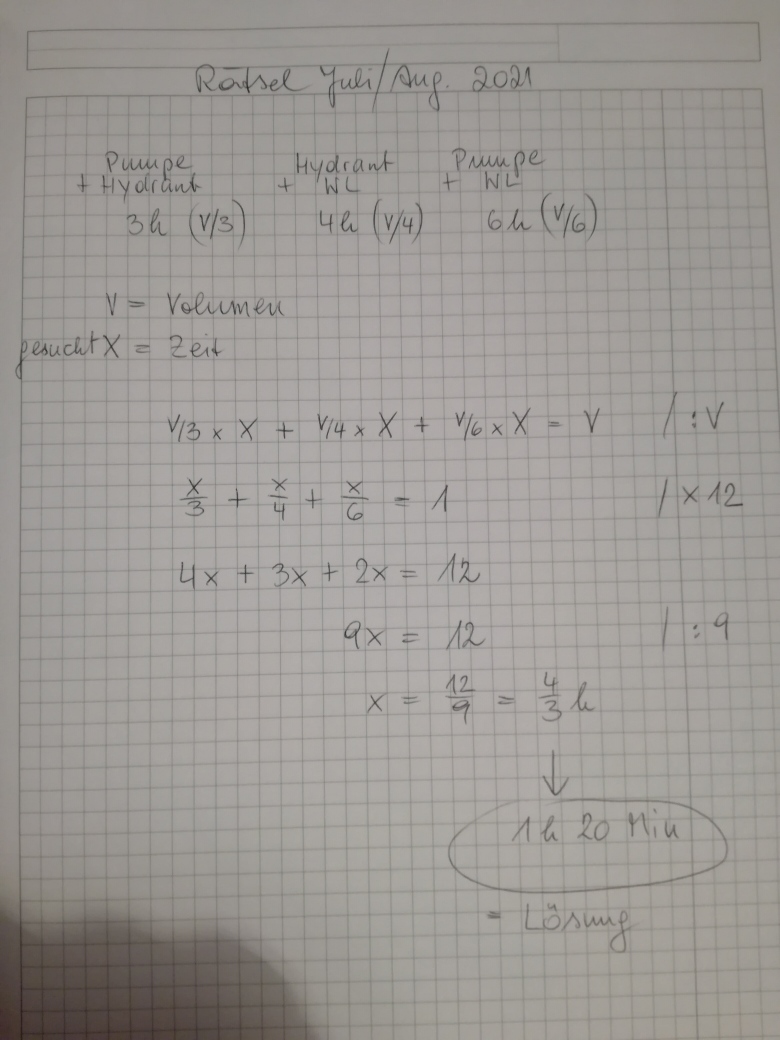 Rätsel Juli/Aug. 2021
Pumpe + Hydrant
Hydrant + WL
Pumpe + WL
3h (V/3) 4h (V/4) 6h (V/6)
V = Volumen
gesucht X = Zeit
V/3 × X + V/4 × X + V/6 × X = V / :V
x/3 + x/4 + x/6 = 1 / ×12
4x + 3x + 2x = 12
9x = 12 / :9
x = 12/9 = 4/3 h
↓
1h 20 Min
= Lösung